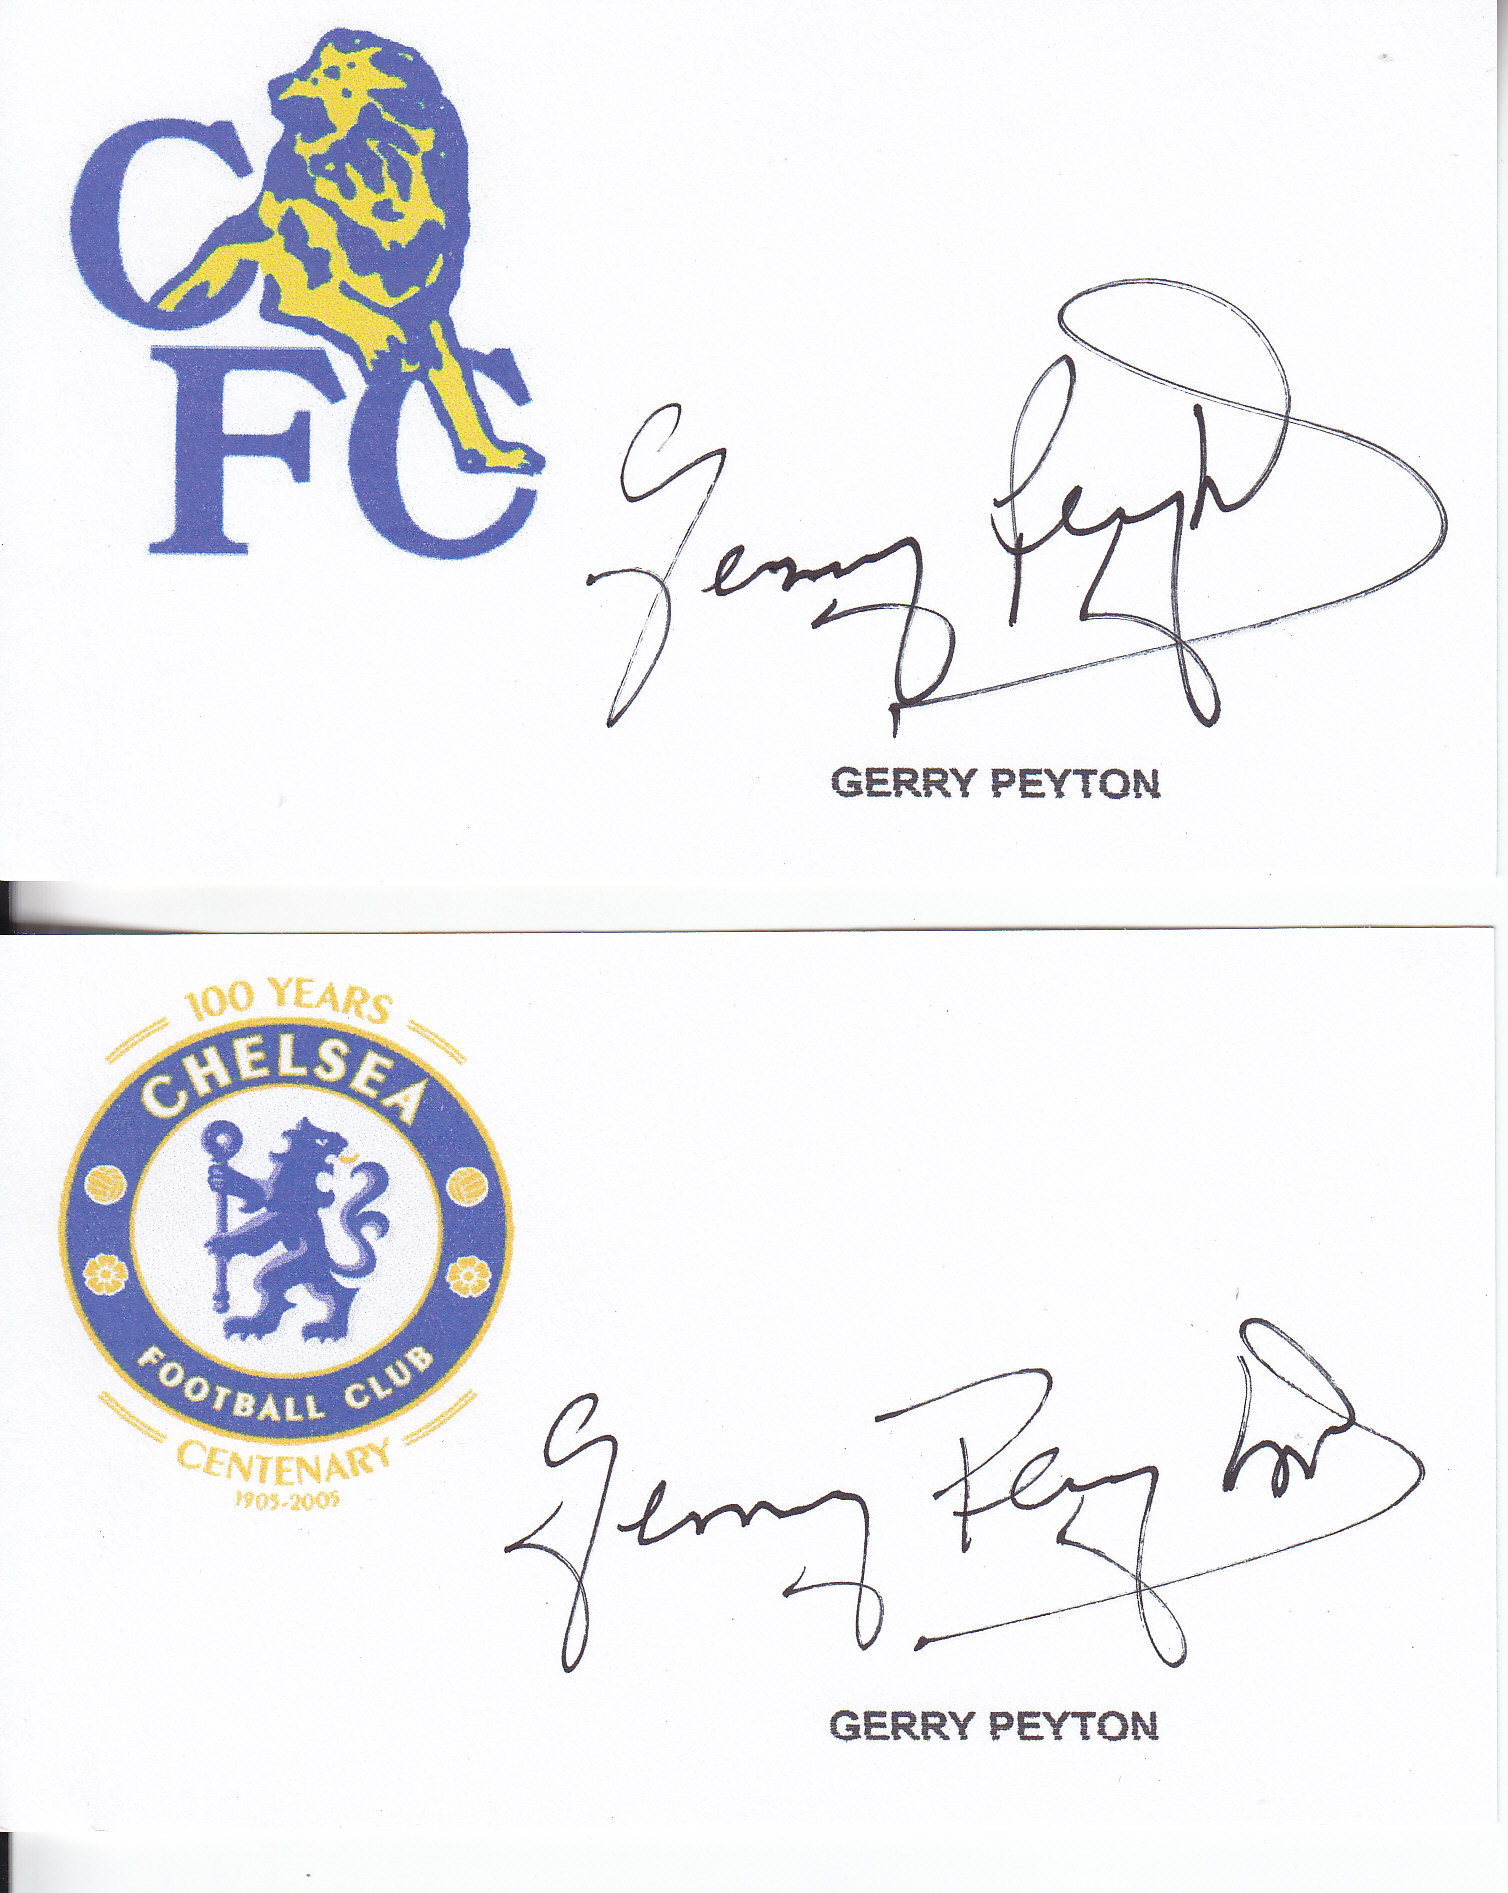 C
FC
Gerry Peyton
GERRY PEYTON
100 YEARS
CHELSEA
FOOTBALL CLUB
CENTENARY
1905-2005
Gerry Peyton
GERRY PEYTON